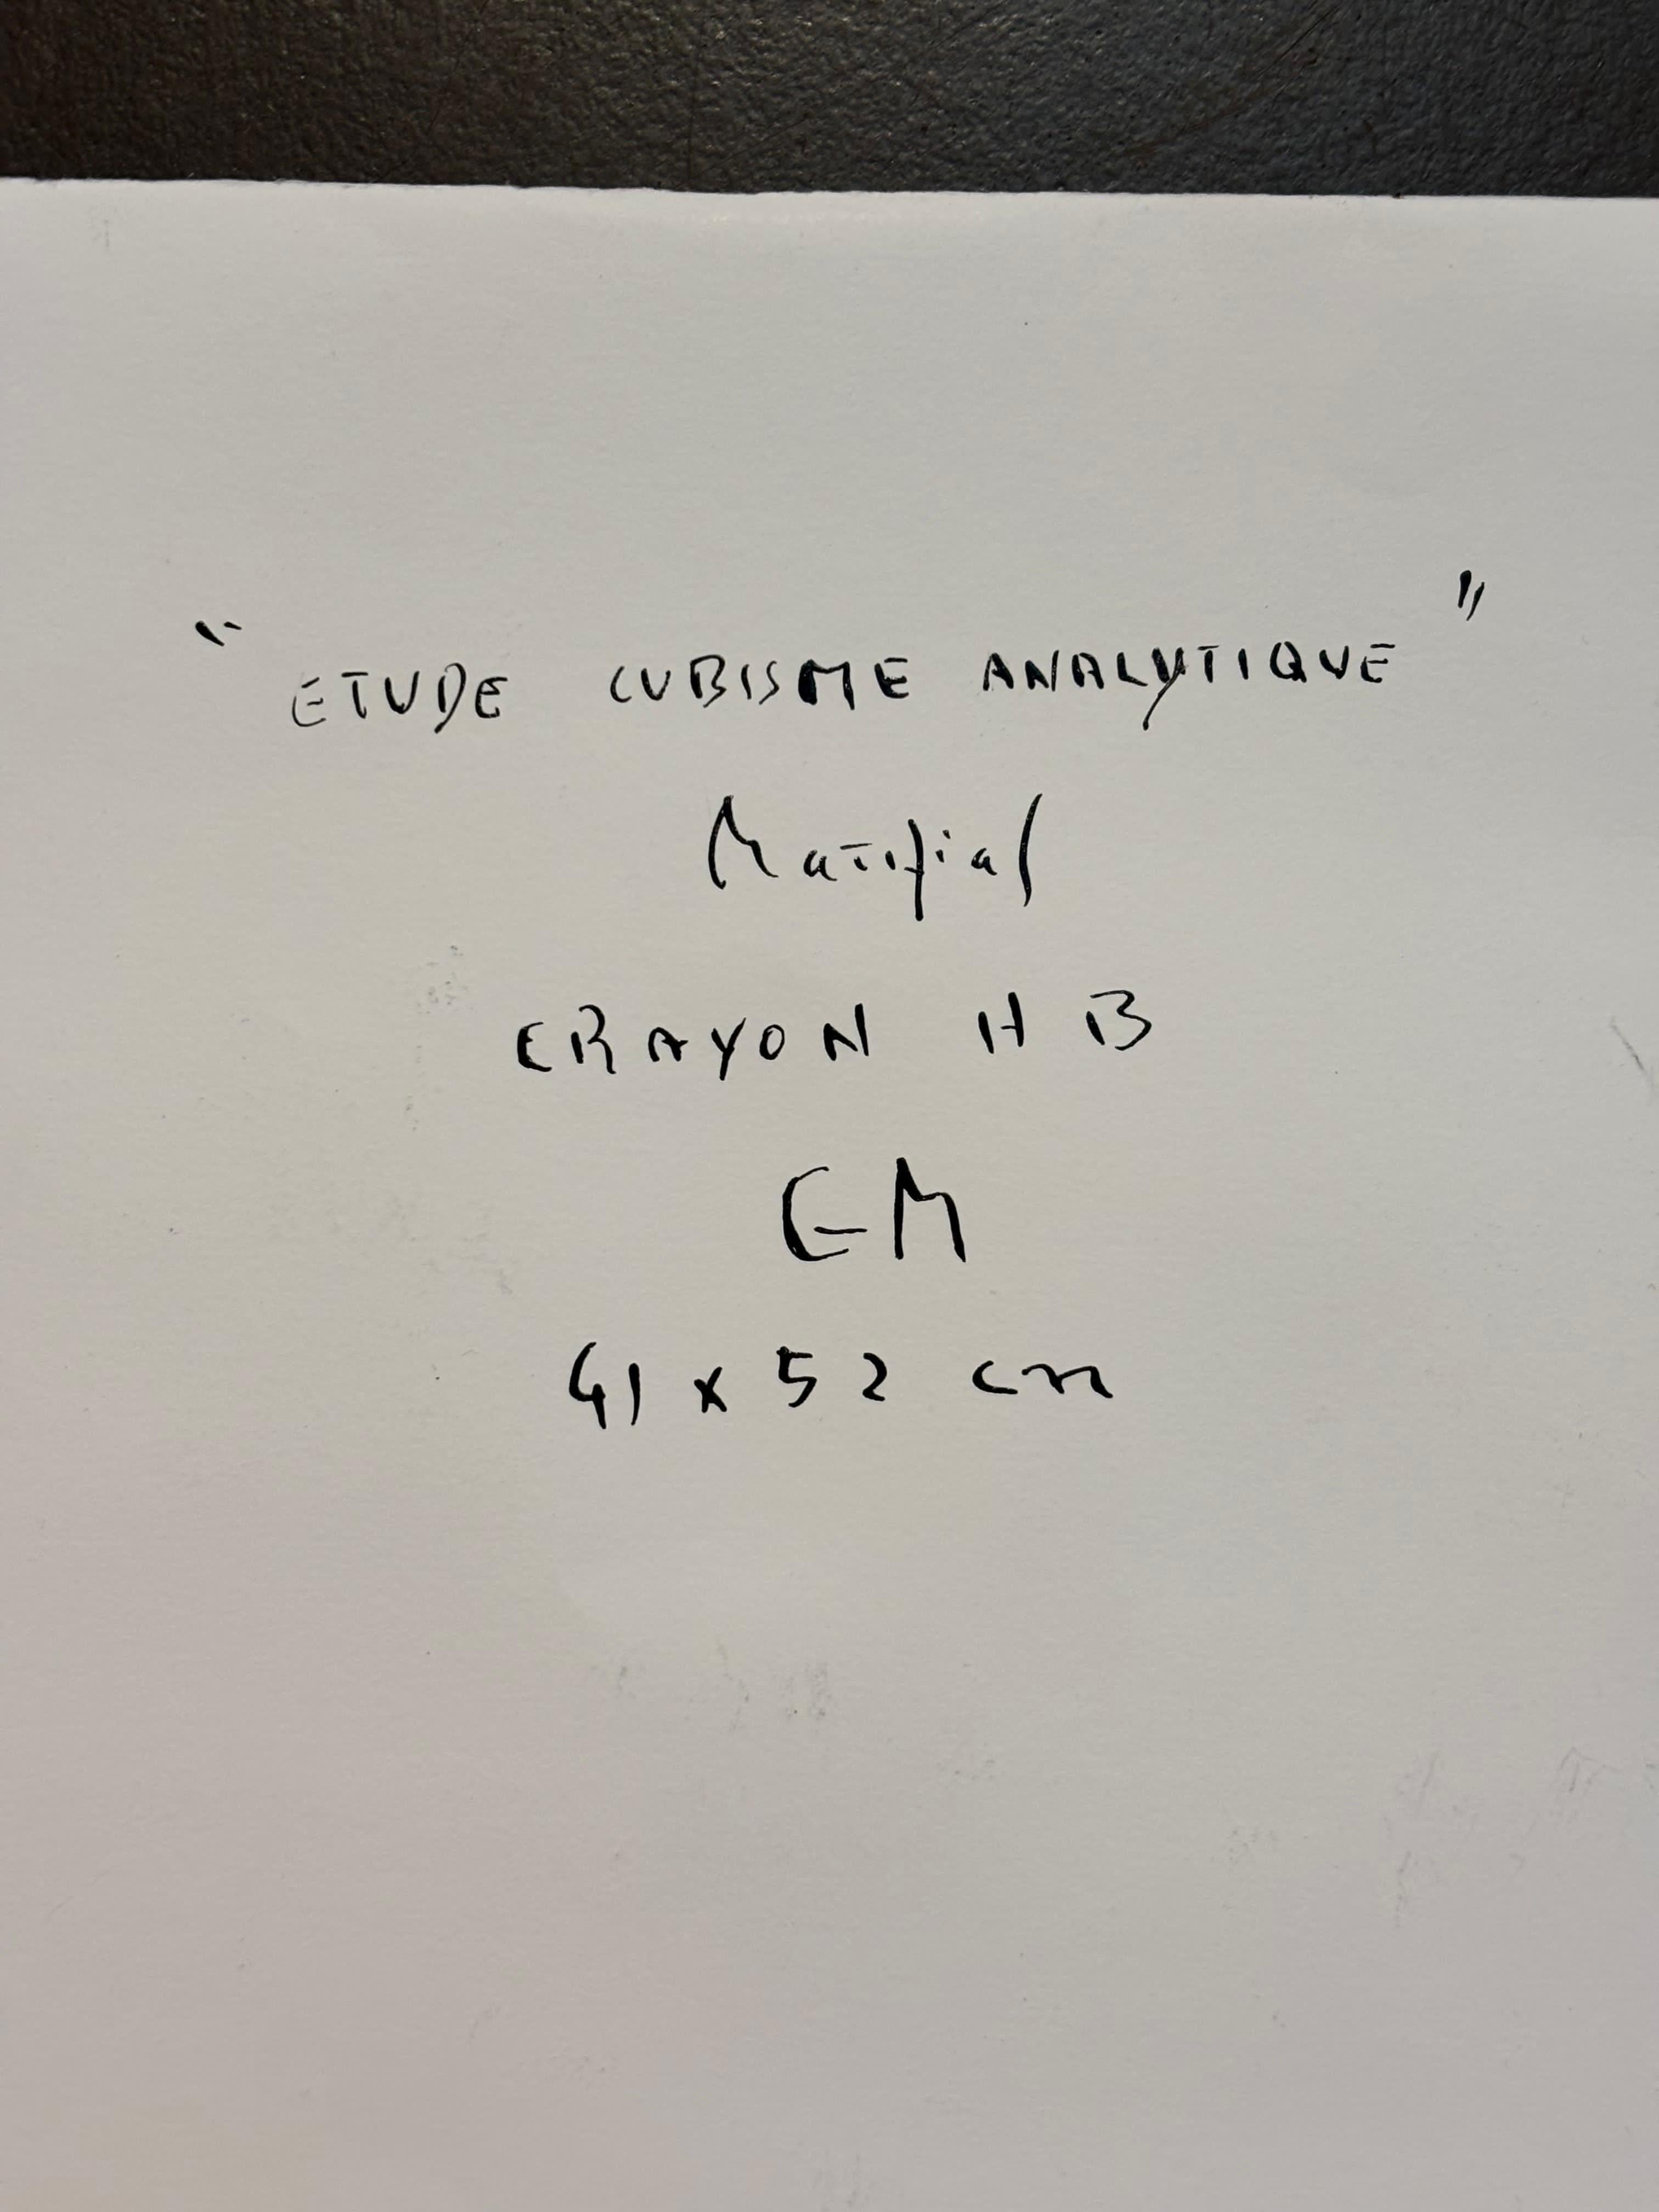 " ETUDE CUBISME ANALYTIQUE "
CRAYON HB
EM
41 x 52 cm